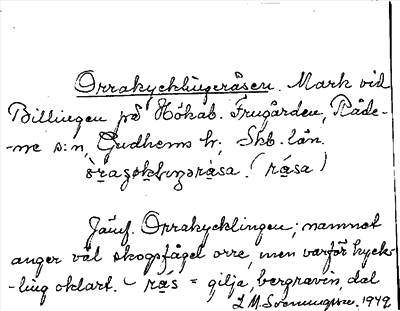 Orrakycklingeråsen. Mark vid
Billingen på Hökab. Frugården, Råde-
-ne s:n, Gudhems h; Skb. län.
(råsa)
Jämf. Orrakycklingen; namnet
anger väl skogsfågel orre, men varför kyck-
-ling oklart. - rås = gilja, bergravin, dal
1949